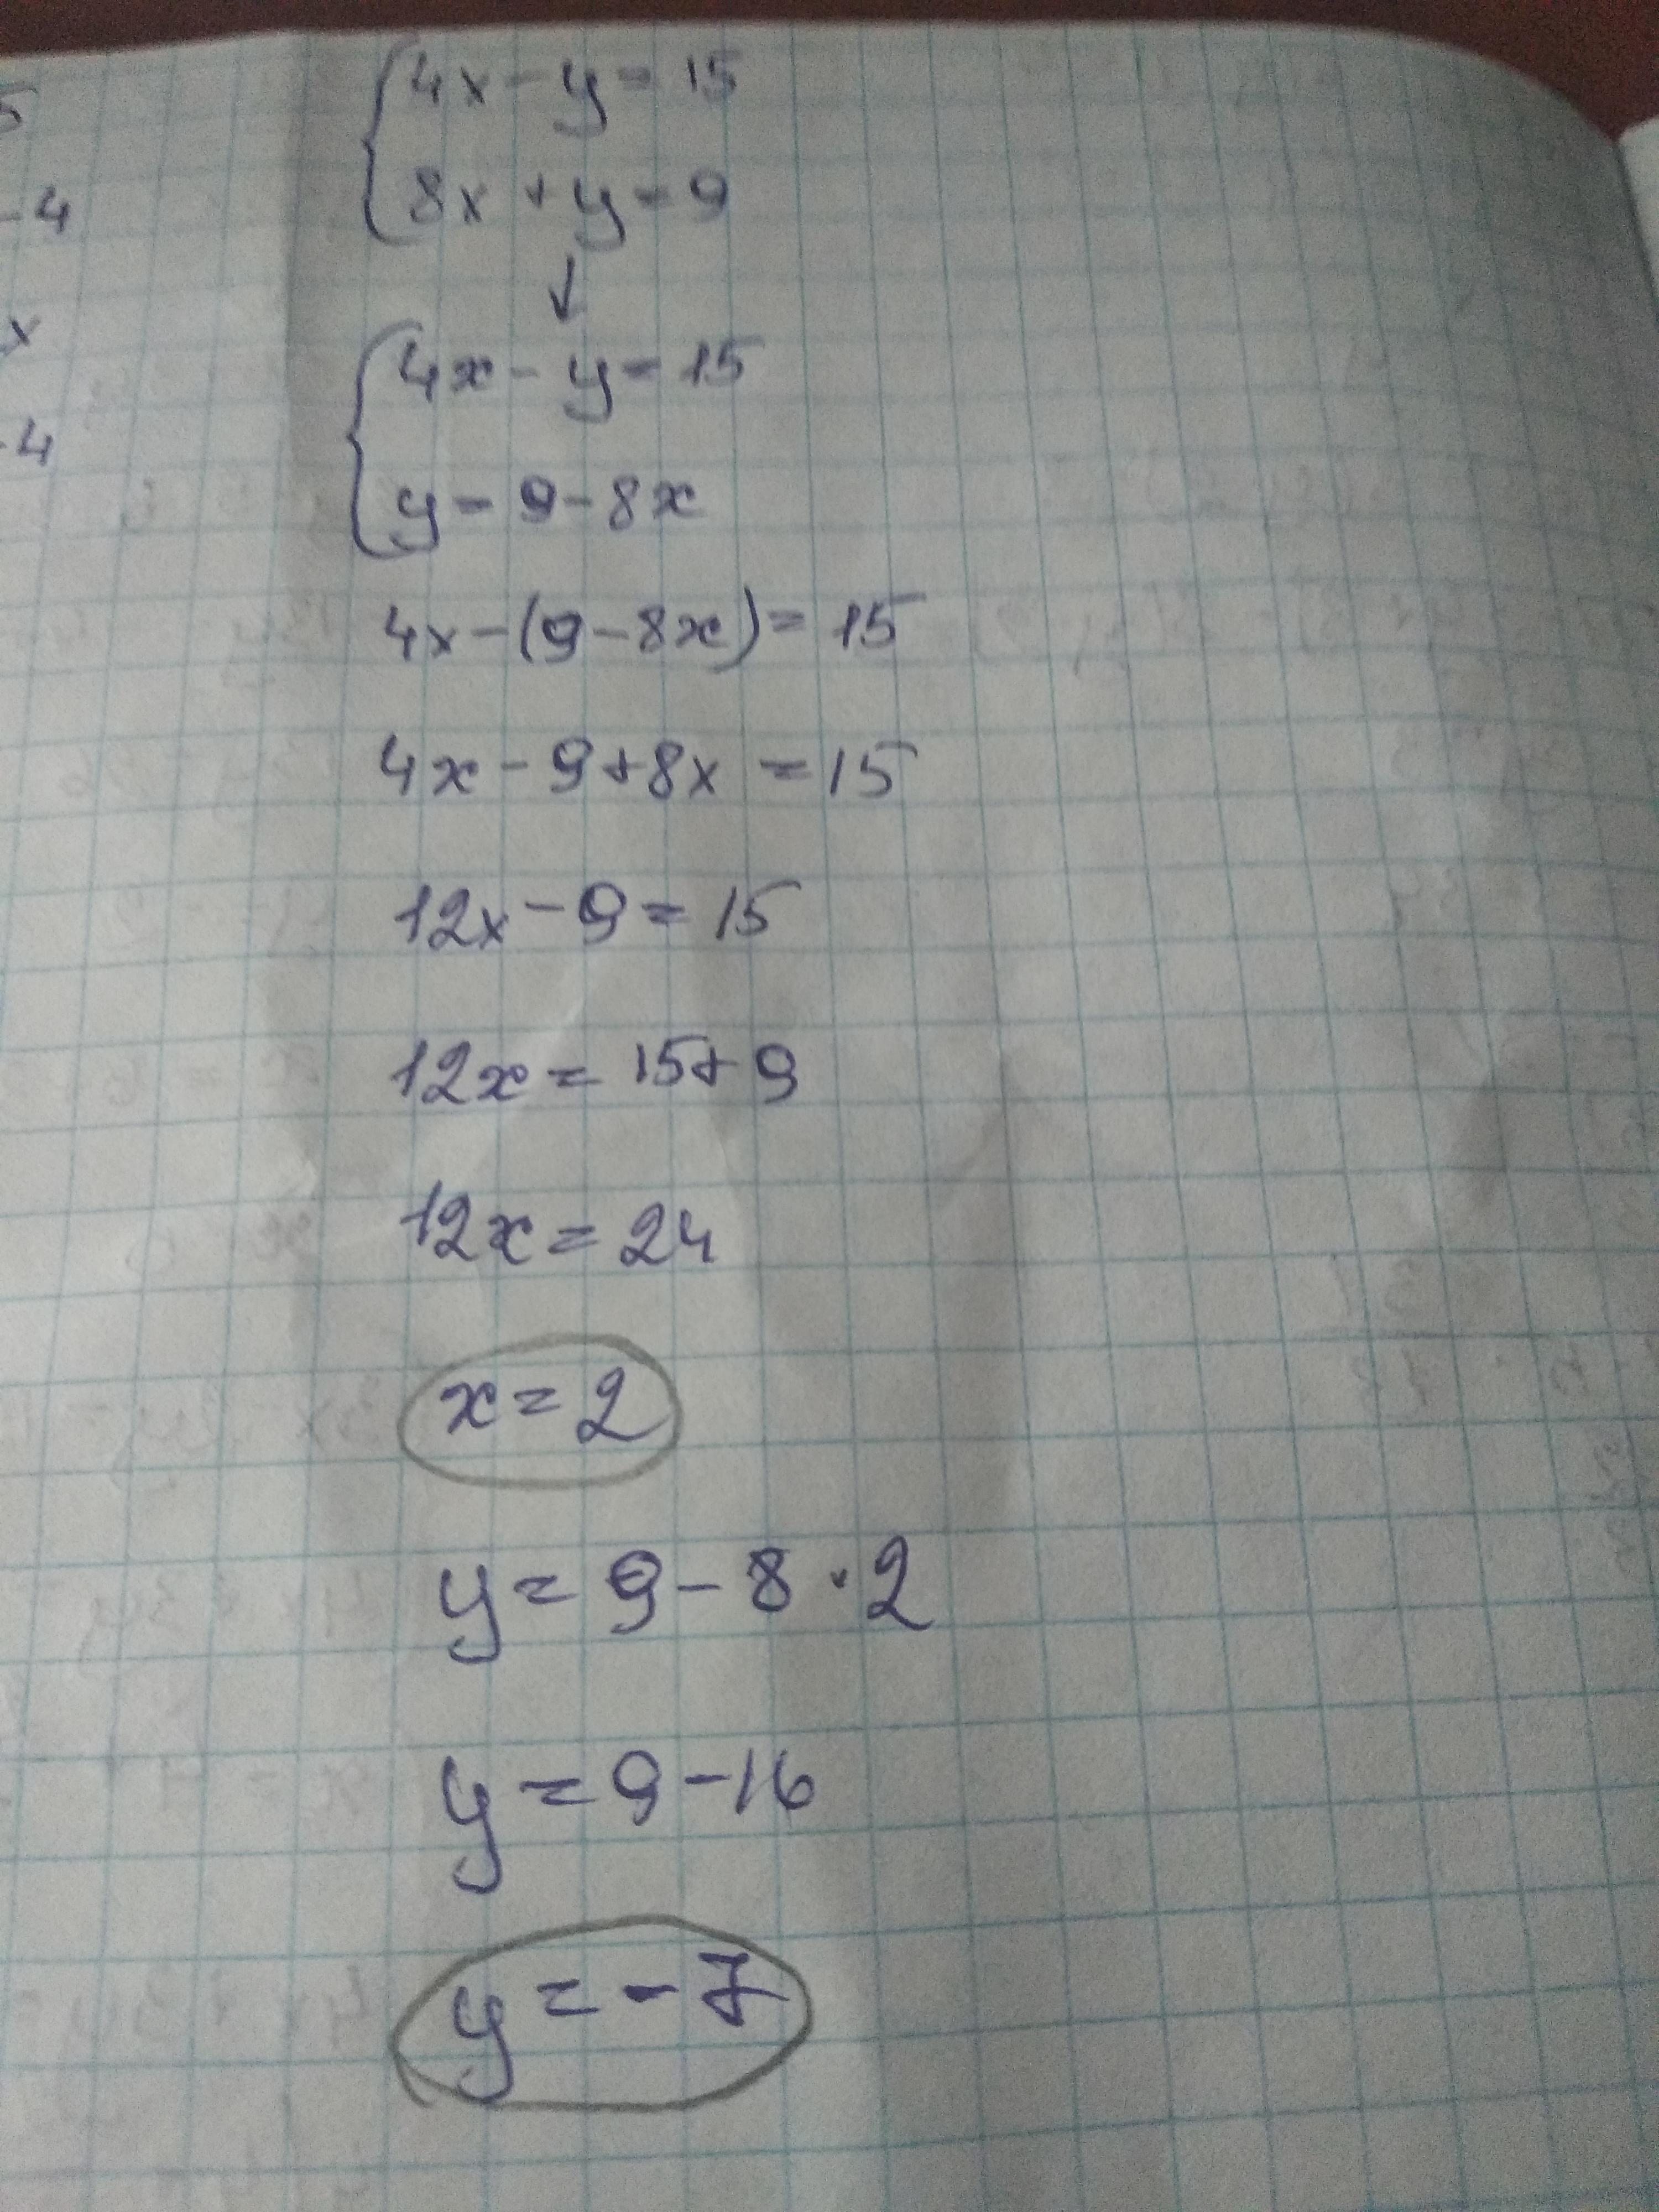 5
-4
x
-4
4x - y = 15
8x + y = 9
↓
4x - y = 15
y = 9 - 8x
4x - (9 - 8x) = 15
4x - 9 + 8x = 15
12x - 9 = 15
12x = 15 + 9
12x = 24
x = 2
y = 9 - 8 · 2
y = 9 - 16
y = - 7